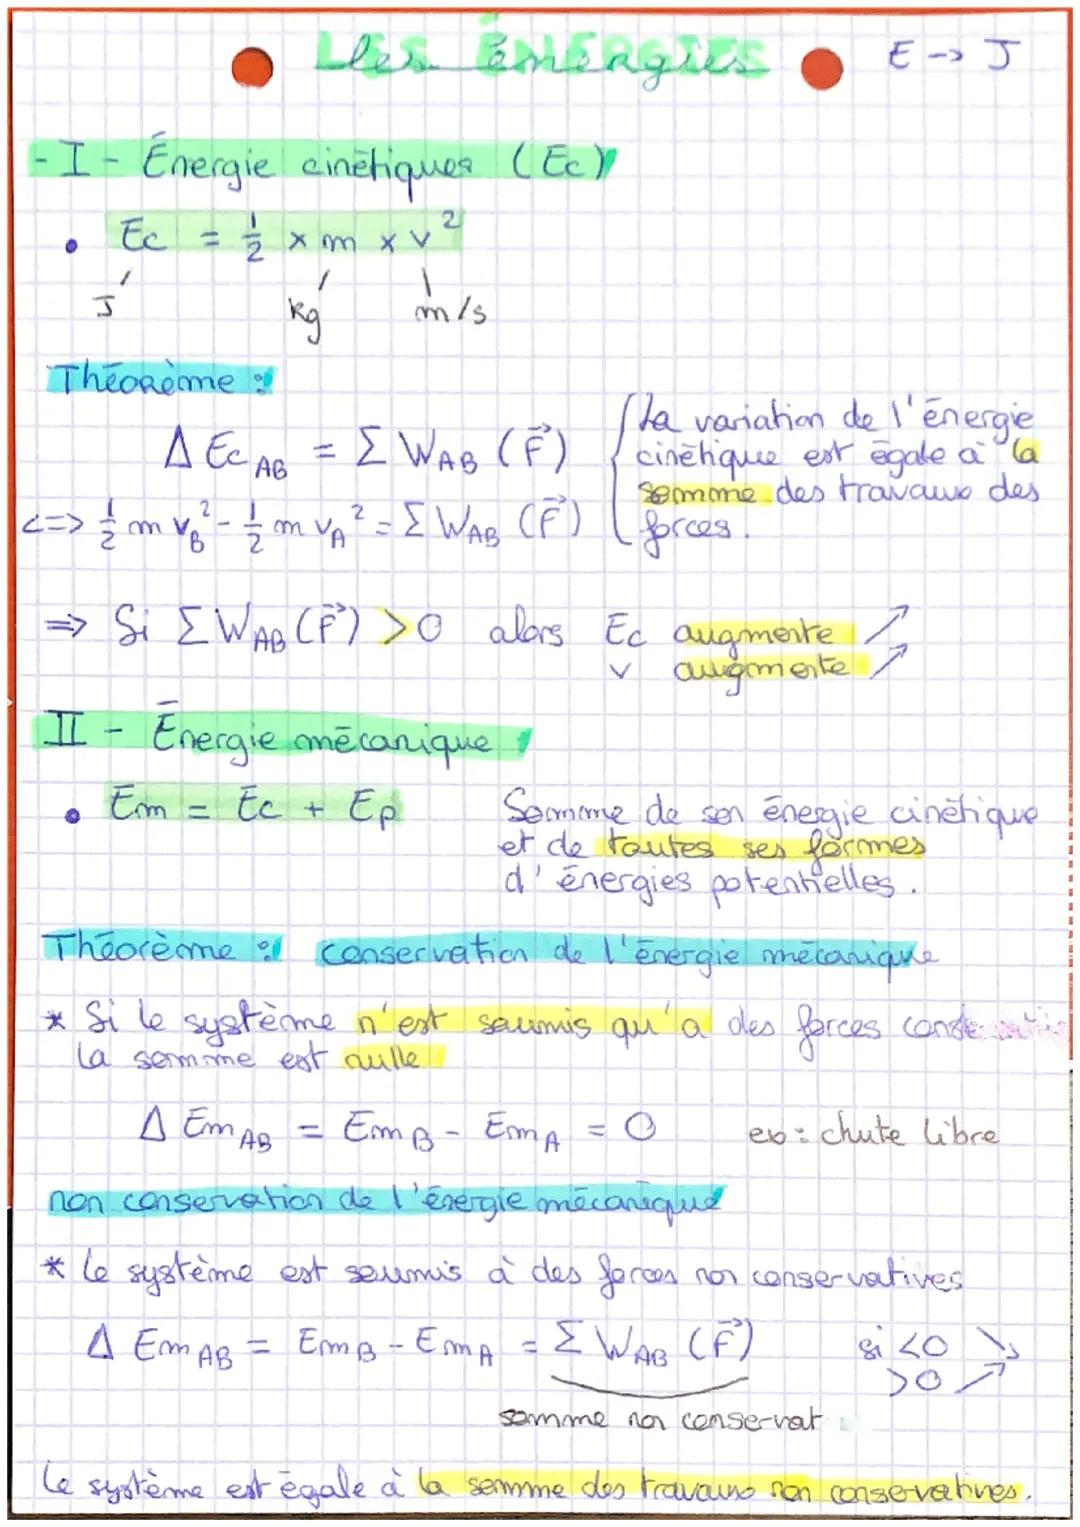 Les énergies E -> J
- I - Énergie cinétiques (Ec)
• Ec = 1/2 × m × v²
J kg m/s
Théorème :
Δ Ec AB = Σ W AB (F⃗)
<=> 1/2 m v_B² - 1/2 m v_A² = Σ W AB (F⃗)
La variation de l'énergie
cinétique est égale à la
somme des travaux des
forces.
=> Si Σ W AB (F⃗) > 0 alors Ec augmente ↗
v augmente ↗
II - Énergie mécanique
• Em = Ec + Ep
Somme de son énergie cinétique
et de toutes ses formes
d'énergies potentielles.
Théorème : conservation de l'énergie mécanique
* Si le système n'est soumis qu'a des forces
la somme est nulle
Δ Em AB = Em B - Em A = 0 ex : chute libre
non conservation de l'énergie mécanique
* Le système est soumis à des forces non conservatives
Δ Em AB = Em B - Em A = Σ W AB (F⃗) si <0 ↘
>0 ↗
somme non conservat
Le système est égale à la somme des travaux non conservatives.